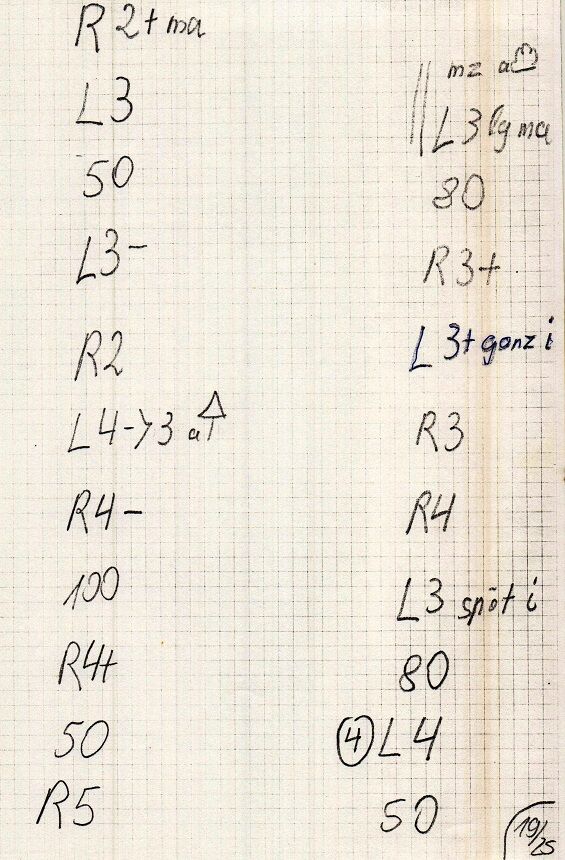 R 2+ ma
L3
50
L3-
R2
L4->3 a
R4-
100
R4+
50
R5
mz a
L3 lg ma
80
R3+
L3+ ganz i
R3
R4
L3 spät i
80
4 L4
50
19/25